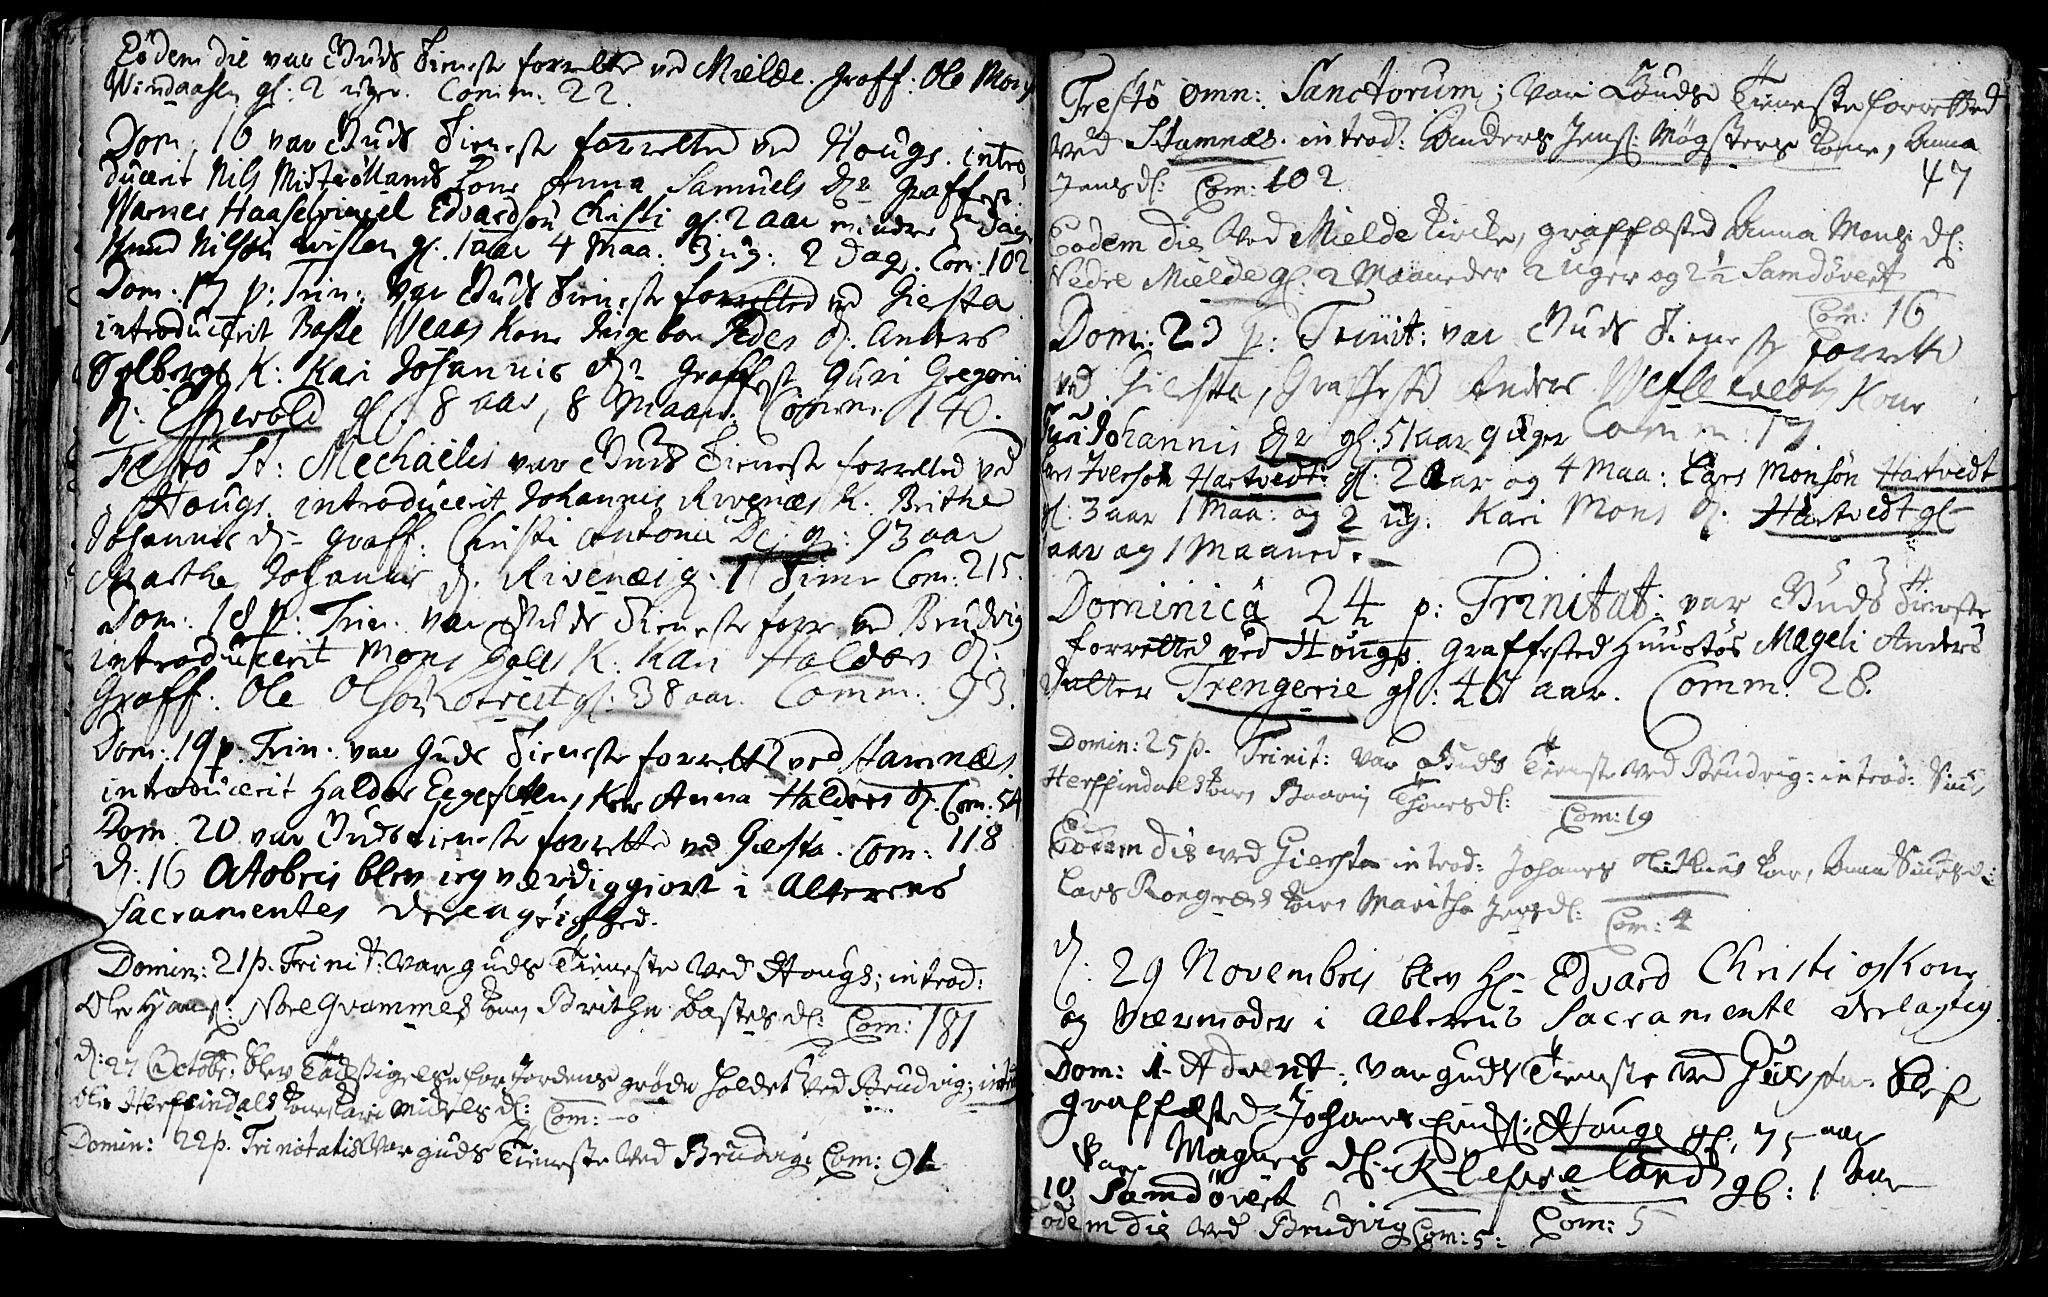 Eodem die var Guds Tieneste forrettet ved Mielde. Graff. Ole Mons
Windaasen gl: 2 uger. Comm: 22.
Dom: 16 var Guds Tieneste forretted ved Hougs. intro
ducerit Nils Kone Anna Samuels D: Graffest
Warner Edvardsøn Christi gl. 2 aar mindre 5 Dage
Knud Nilsøn gl. 1 aar 4 Maa. 3 ug: 2 Dag. Com: 102
Dom. 17 p: Trin: var Guds Tieneste forretted ved Giesta
introducerit Baste Weaas Kone Ingebor Peder D. Anders
Solbergs K: Kari Johannis D: Graffest Guri Gregorii
D: gl: 8 aar, 8 Maan. Comm: 140.
Festo St: Mechaelis var Guds Tieneste forretted ved
Hougs. introducerit Johannis Rivenæs K. Brithe
Johannis D: Graff: Christi Antonii D: g: 93 aar
Marthe Johannis D. Rivenæs g. 11 Time Com: 215.
Dom. 18 p: Trin. var Guds Tieneste forr ved Brudvig
introducerit Mons K. Kari Haldors D:
Graff: Ole Olsøn gl: 38 aar. Comm: 93.
Dom: 19 p. Trin. var Guds Tieneste forrettet ved Hamnæs.
introducerit Haldor Kone Anna Haldors D: Com: 54
Dom. 20 var Guds Tieneste forrettet ved Giesta. Com: 118
D: 16 Octobris blev ieg værdiggiort i Alterens
Sacramentes
Domin: 21 p. Trinit: var Guds Tieneste ved Hougs; introd:
Ole Hans: Kone Brithe Bastes D: Com: 181
D: 27 Octobr: blev Tacksigelse for Jordens grøde holdet ved Brudvig; introd
Ole Herfindals Kone Kari Nickels D: Com: 0
Domin: 22 p. Trinitatis var Guds Tieneste ved Brudvig: Com: 91
Festo Omn: Sanctorum; var Guds Tieneste forretted
ved Stamnæs. introd: Anders Jens: Møgsters Kone, Anna
Jens D: Com: 102
47
Eodem die ved Mielde Kircke, graffæsted Anna Mons D:
Nedre Mielde gl: 2 Maaneder 2 Uger og 2 1/2 Samdøvert
Com: 16
Dom: 23 p: Trinit: var Guds Tieneste forrettet
ved Giesta, Graffested Anders Kone
Johannis D: gl: 51 aar 9 uger Comm: 17.
Lars Iversøn Hartvedt: gl: 2 aar og 4 Maa: Lars Monsøn Hartvedt
gl: 3 aar 1 Maa: og 2 ug: Kari Mons D: Hartvedt gl
aar og 1 Maaned.
Dominica 24 p: Trinitat: var Guds Tieneste
forretted ved Hougs. Graffested Mageli Anders
Datter Trengerie gl: aar. Comm: 28.
Domin: 25 p. Trinit: var Guds Tieneste ved Brudvig: introd:
Herffindals Kone D: Com: 19
Eodem die ved Giesta introd: Johanes Kone, Anna D:
Lars Kone Maritha D: Com: 4
D: 29 Novembris blev Hl: Edvard Christi og Kone
og Værmoder i Alterens Sacramente deelagtig
Dom: 1 Advent: var Guds Tieneste ved Giesta. blef
graffæsted Johanes Houge gl: 75 aar
Magnes D: gl: 1 Aar
10 Samdøvert Com: 5
Eodem die ved Brudvig Com: 5: